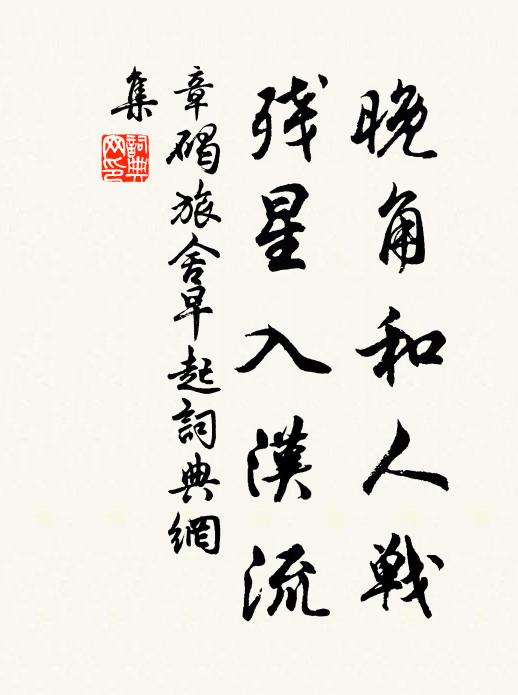 晚角和人战
残星入漢流
章碣旅舍早起詞典網
集
詞典
网印